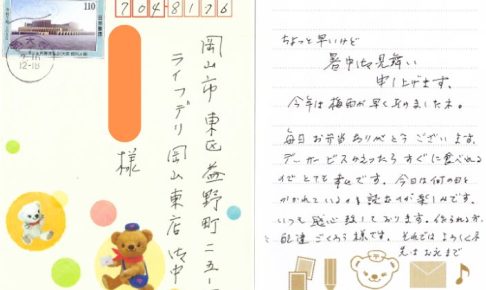 110
704-8126
岡山市東区益野町二五一
ライフデリ岡山東店御中
様
ちょっと早いけど
暑中お見舞い
申し上げます。
今年は梅雨が早く明けましたネ。
毎日お弁当ありがとうございます。
デーサービスからかえったらすぐに食べれる
のでとても幸せです。今日は何の日と
かかれているのを読むのが楽しみです。
いつも感心致しております。作られる方、
配達ごくろう様です。それではよろしくネ